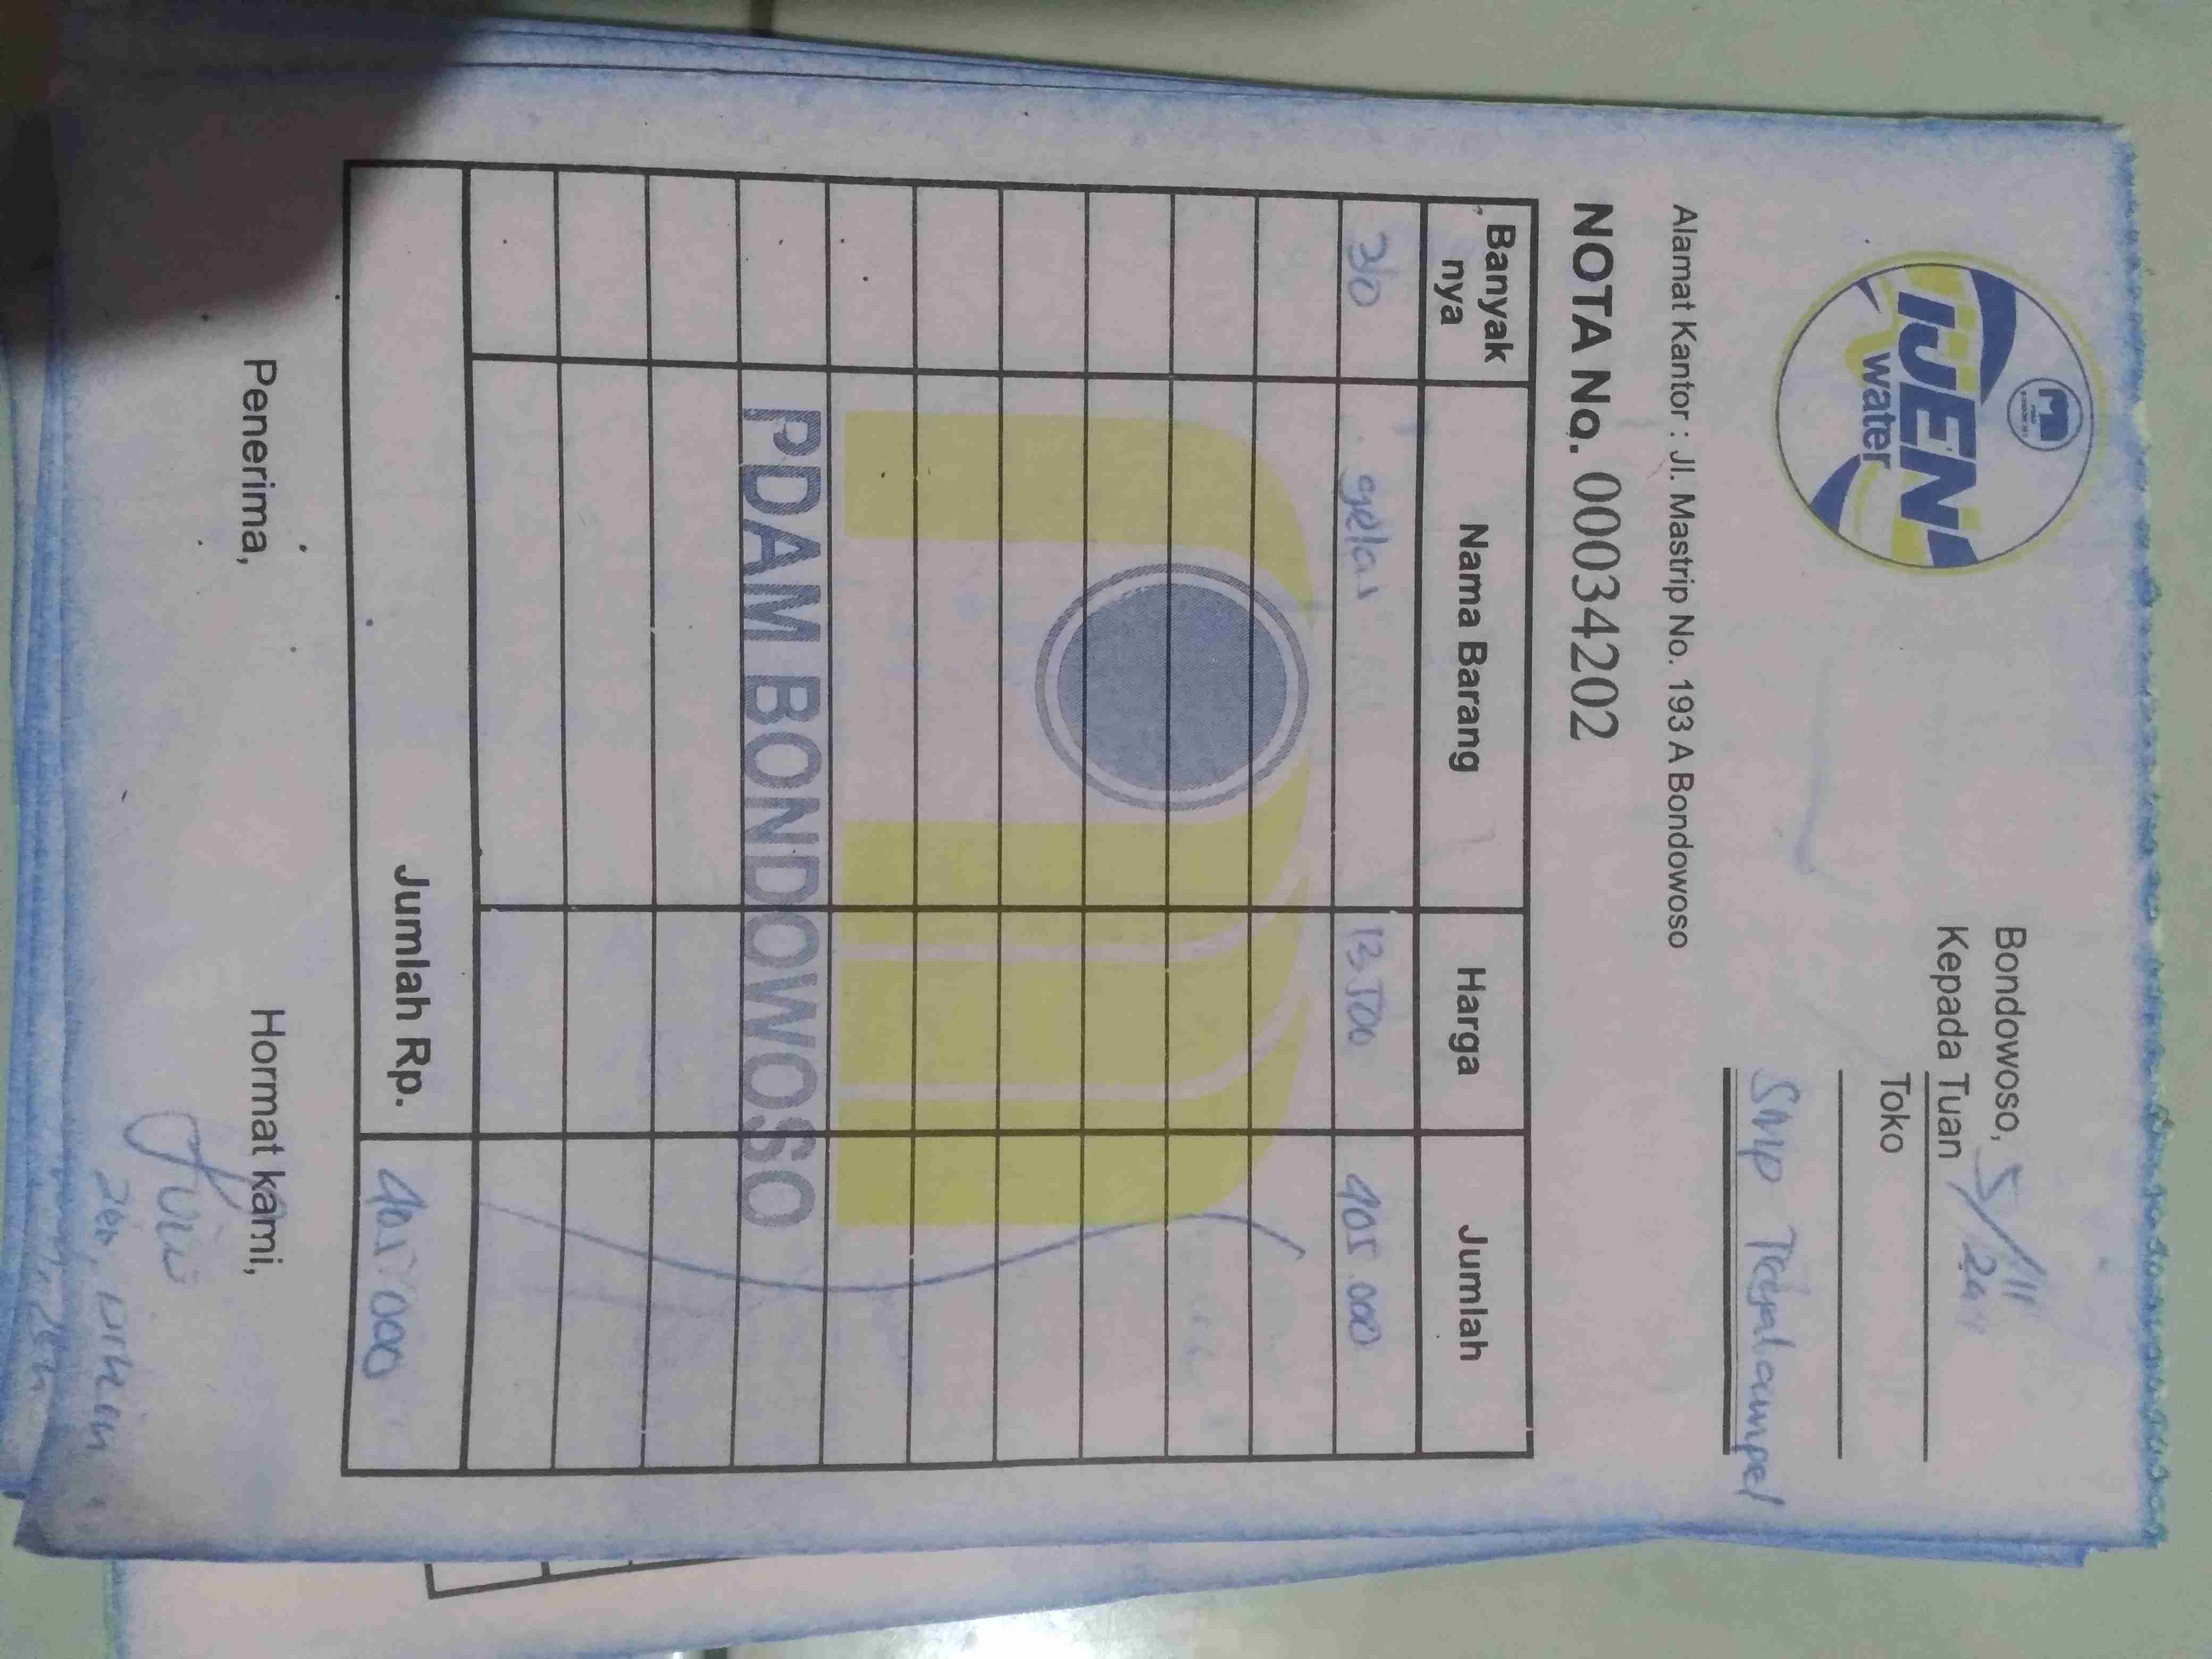 IJEN
water
Bondowoso, 5/11
Kepada Tuan
Toko
SMP Tegalampel
Alamat Kantor : Jl. Mastrip No. 193 A Bondowoso
NOTA No. 00034202
Banyak nya Nama Barang Harga Jumlah
30 gelas 13.500 405.000
PDAM BONDOWOSO
Jumlah Rp. 405.000
Penerima, Hormat kami,